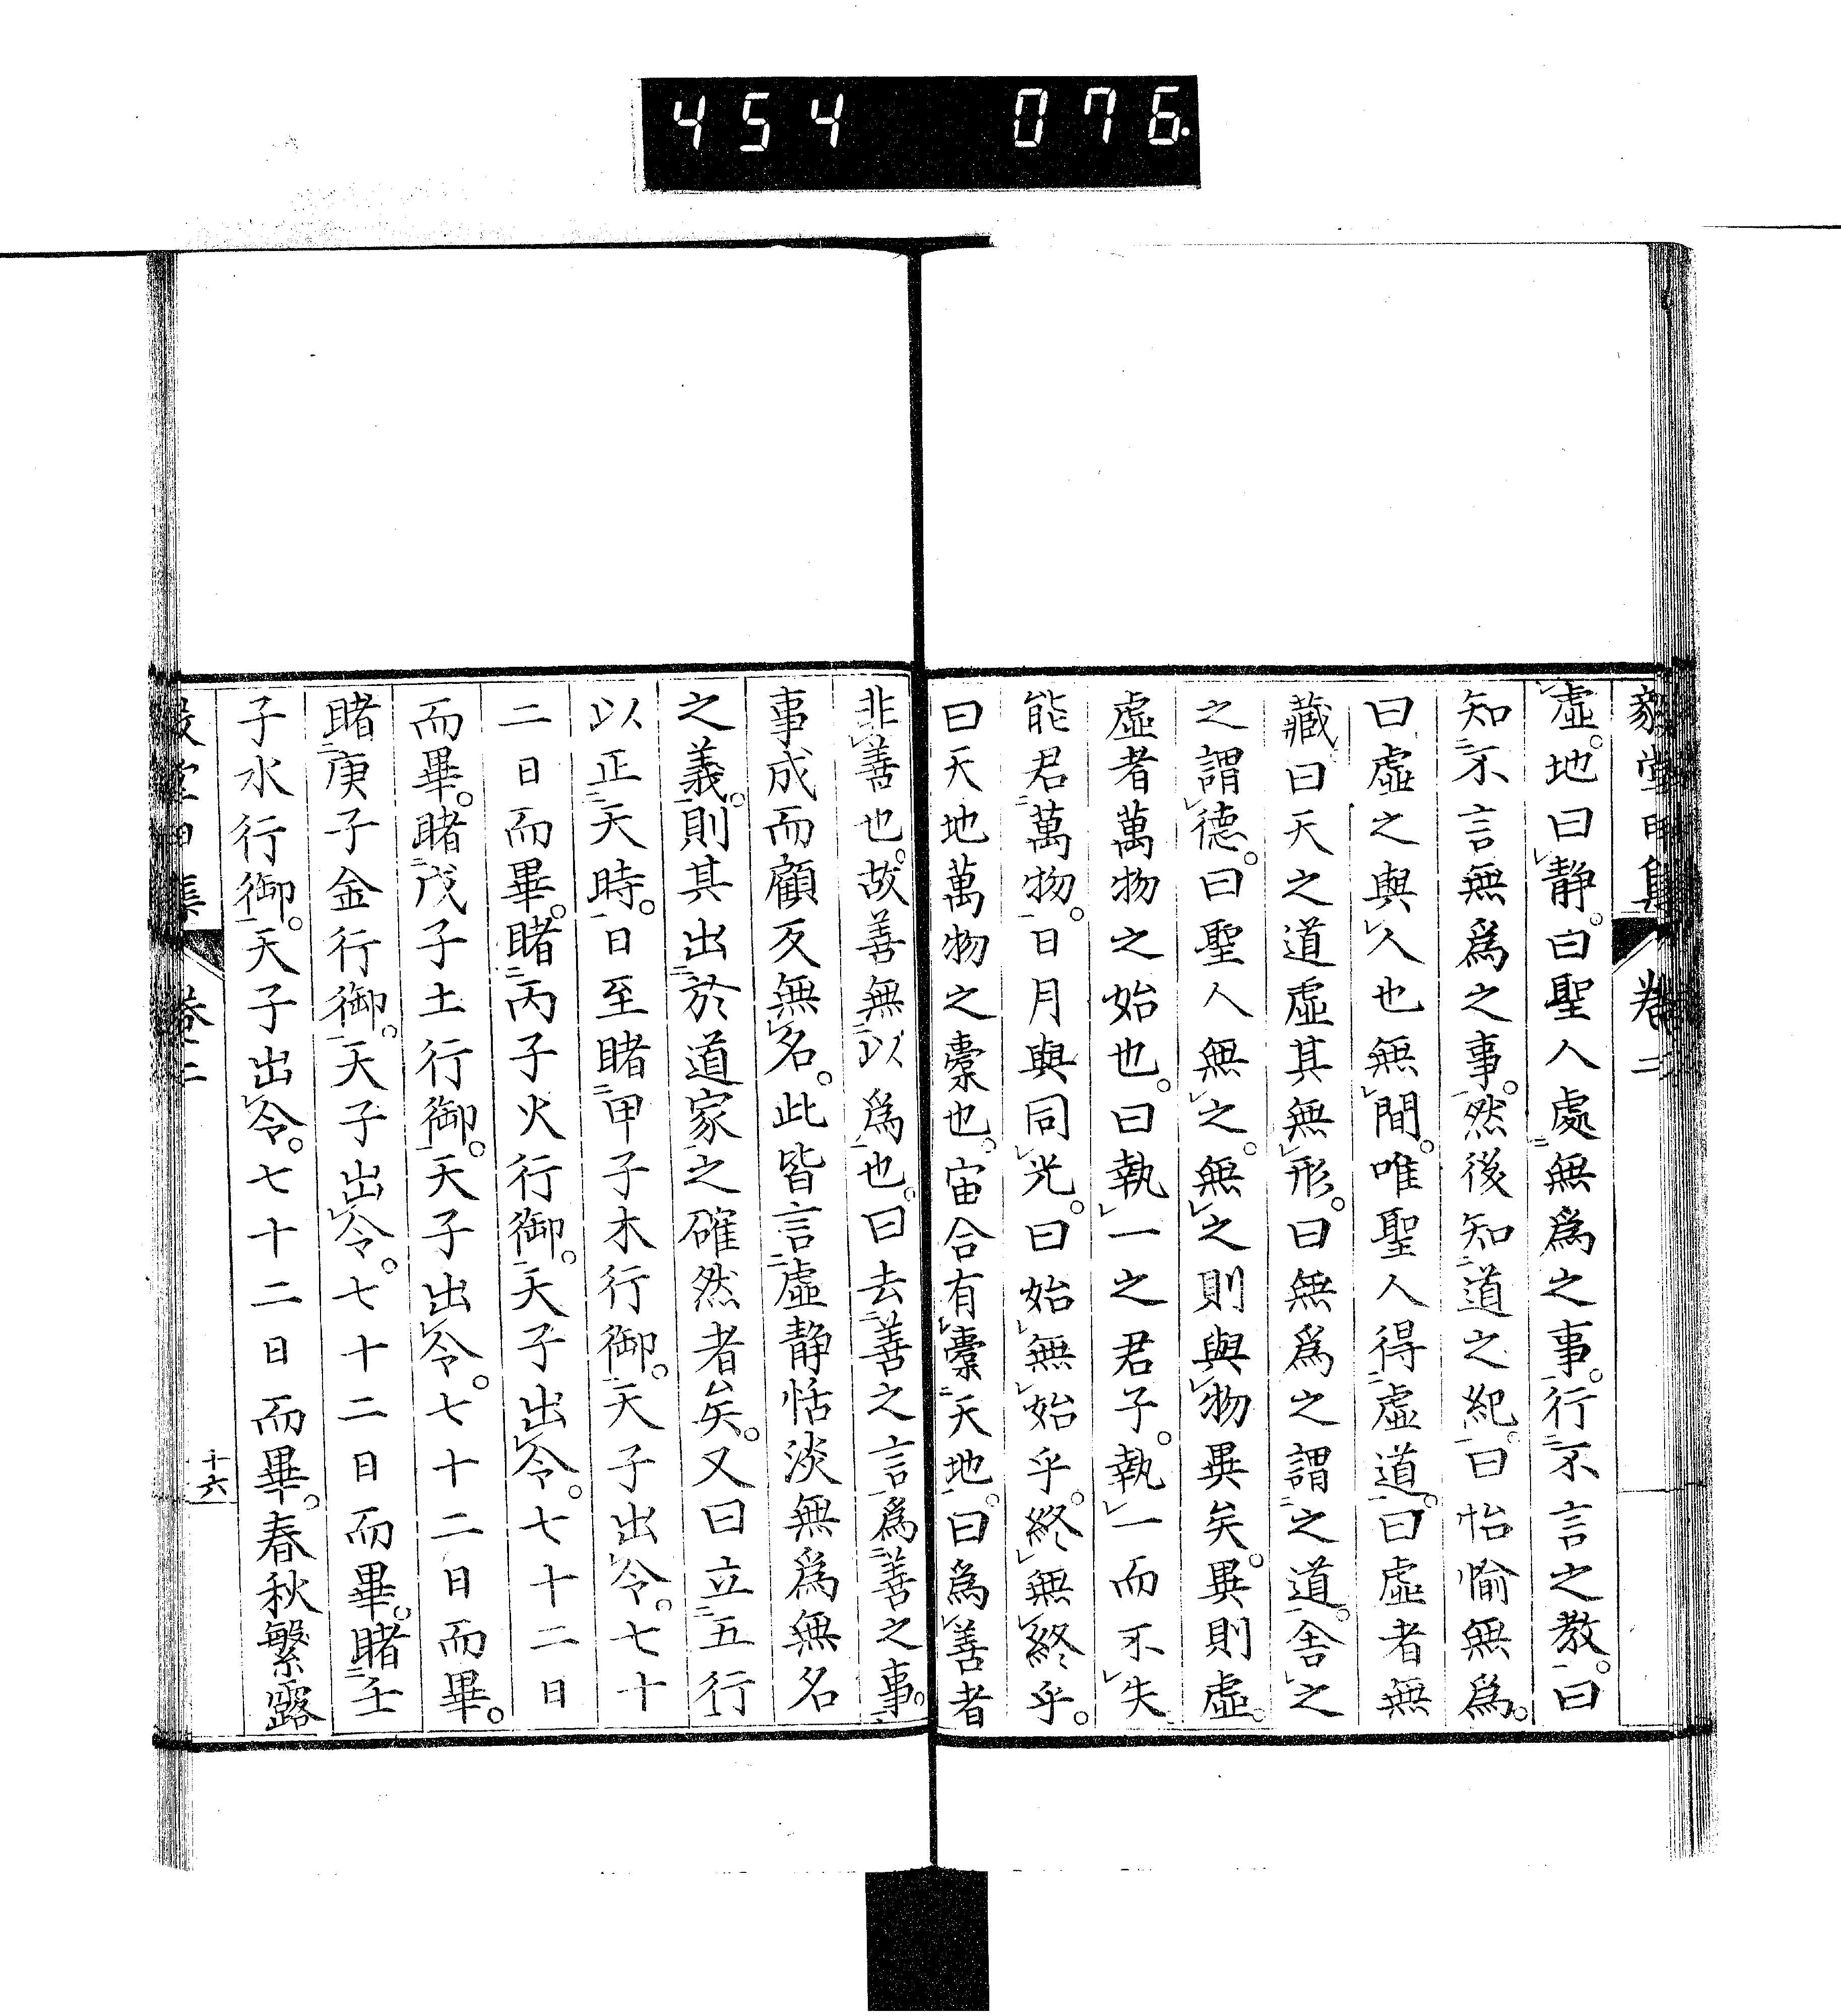 454 076
毅堂甲集 卷二
虛。地曰靜。曰聖人處無爲之事。行不言之教。曰
知不言無爲之事。然後知道之紀。曰怡愉無爲。
曰虛之與人也無間。唯聖人得虛道。曰虛者無
藏曰天之道虛其無形。曰無爲之謂之道。舍之
之謂德。曰聖人無之。無之則與物異矣。異則虛。
虛者萬物之始也。曰執一之君子。執一而不失
能君萬物。日月與同光。曰始無始乎。終無終乎。
曰天地萬物之橐也。宙合有橐天地。曰爲善者
非善也。故善無以爲也。曰去善之言爲善之事。
事成而顧反無名。此皆言虛靜恬淡無爲無名
之義。則其出於道家之確然者矣。又曰立五行
以正天時。日至睹甲子木行御。天子出令。七十
二日而畢。睹丙子火行御。天子出令。七十二日
而畢。睹戊子土行御。天子出令。七十二日而畢。
睹庚子金行御。天子出令。七十二日而畢。睹壬
子水行御。天子出令。七十二日而畢。春秋繁露
集 卷二 十六